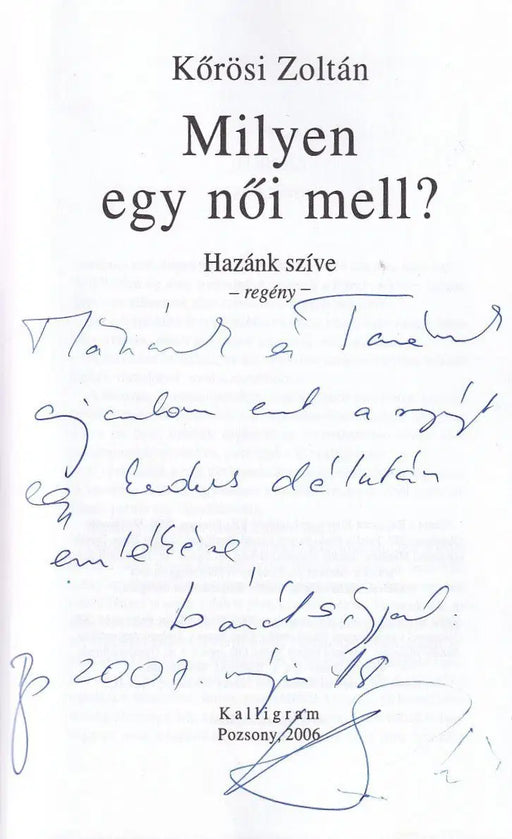 Kőrösi Zoltán
Milyen
egy női mell?
Hazánk szíve
– regény –
és
ajánlom ezt a
egy kedves délután
emlékére,
barátsággal:
Bp 2007. május 18
Kalligram
Pozsony, 2006